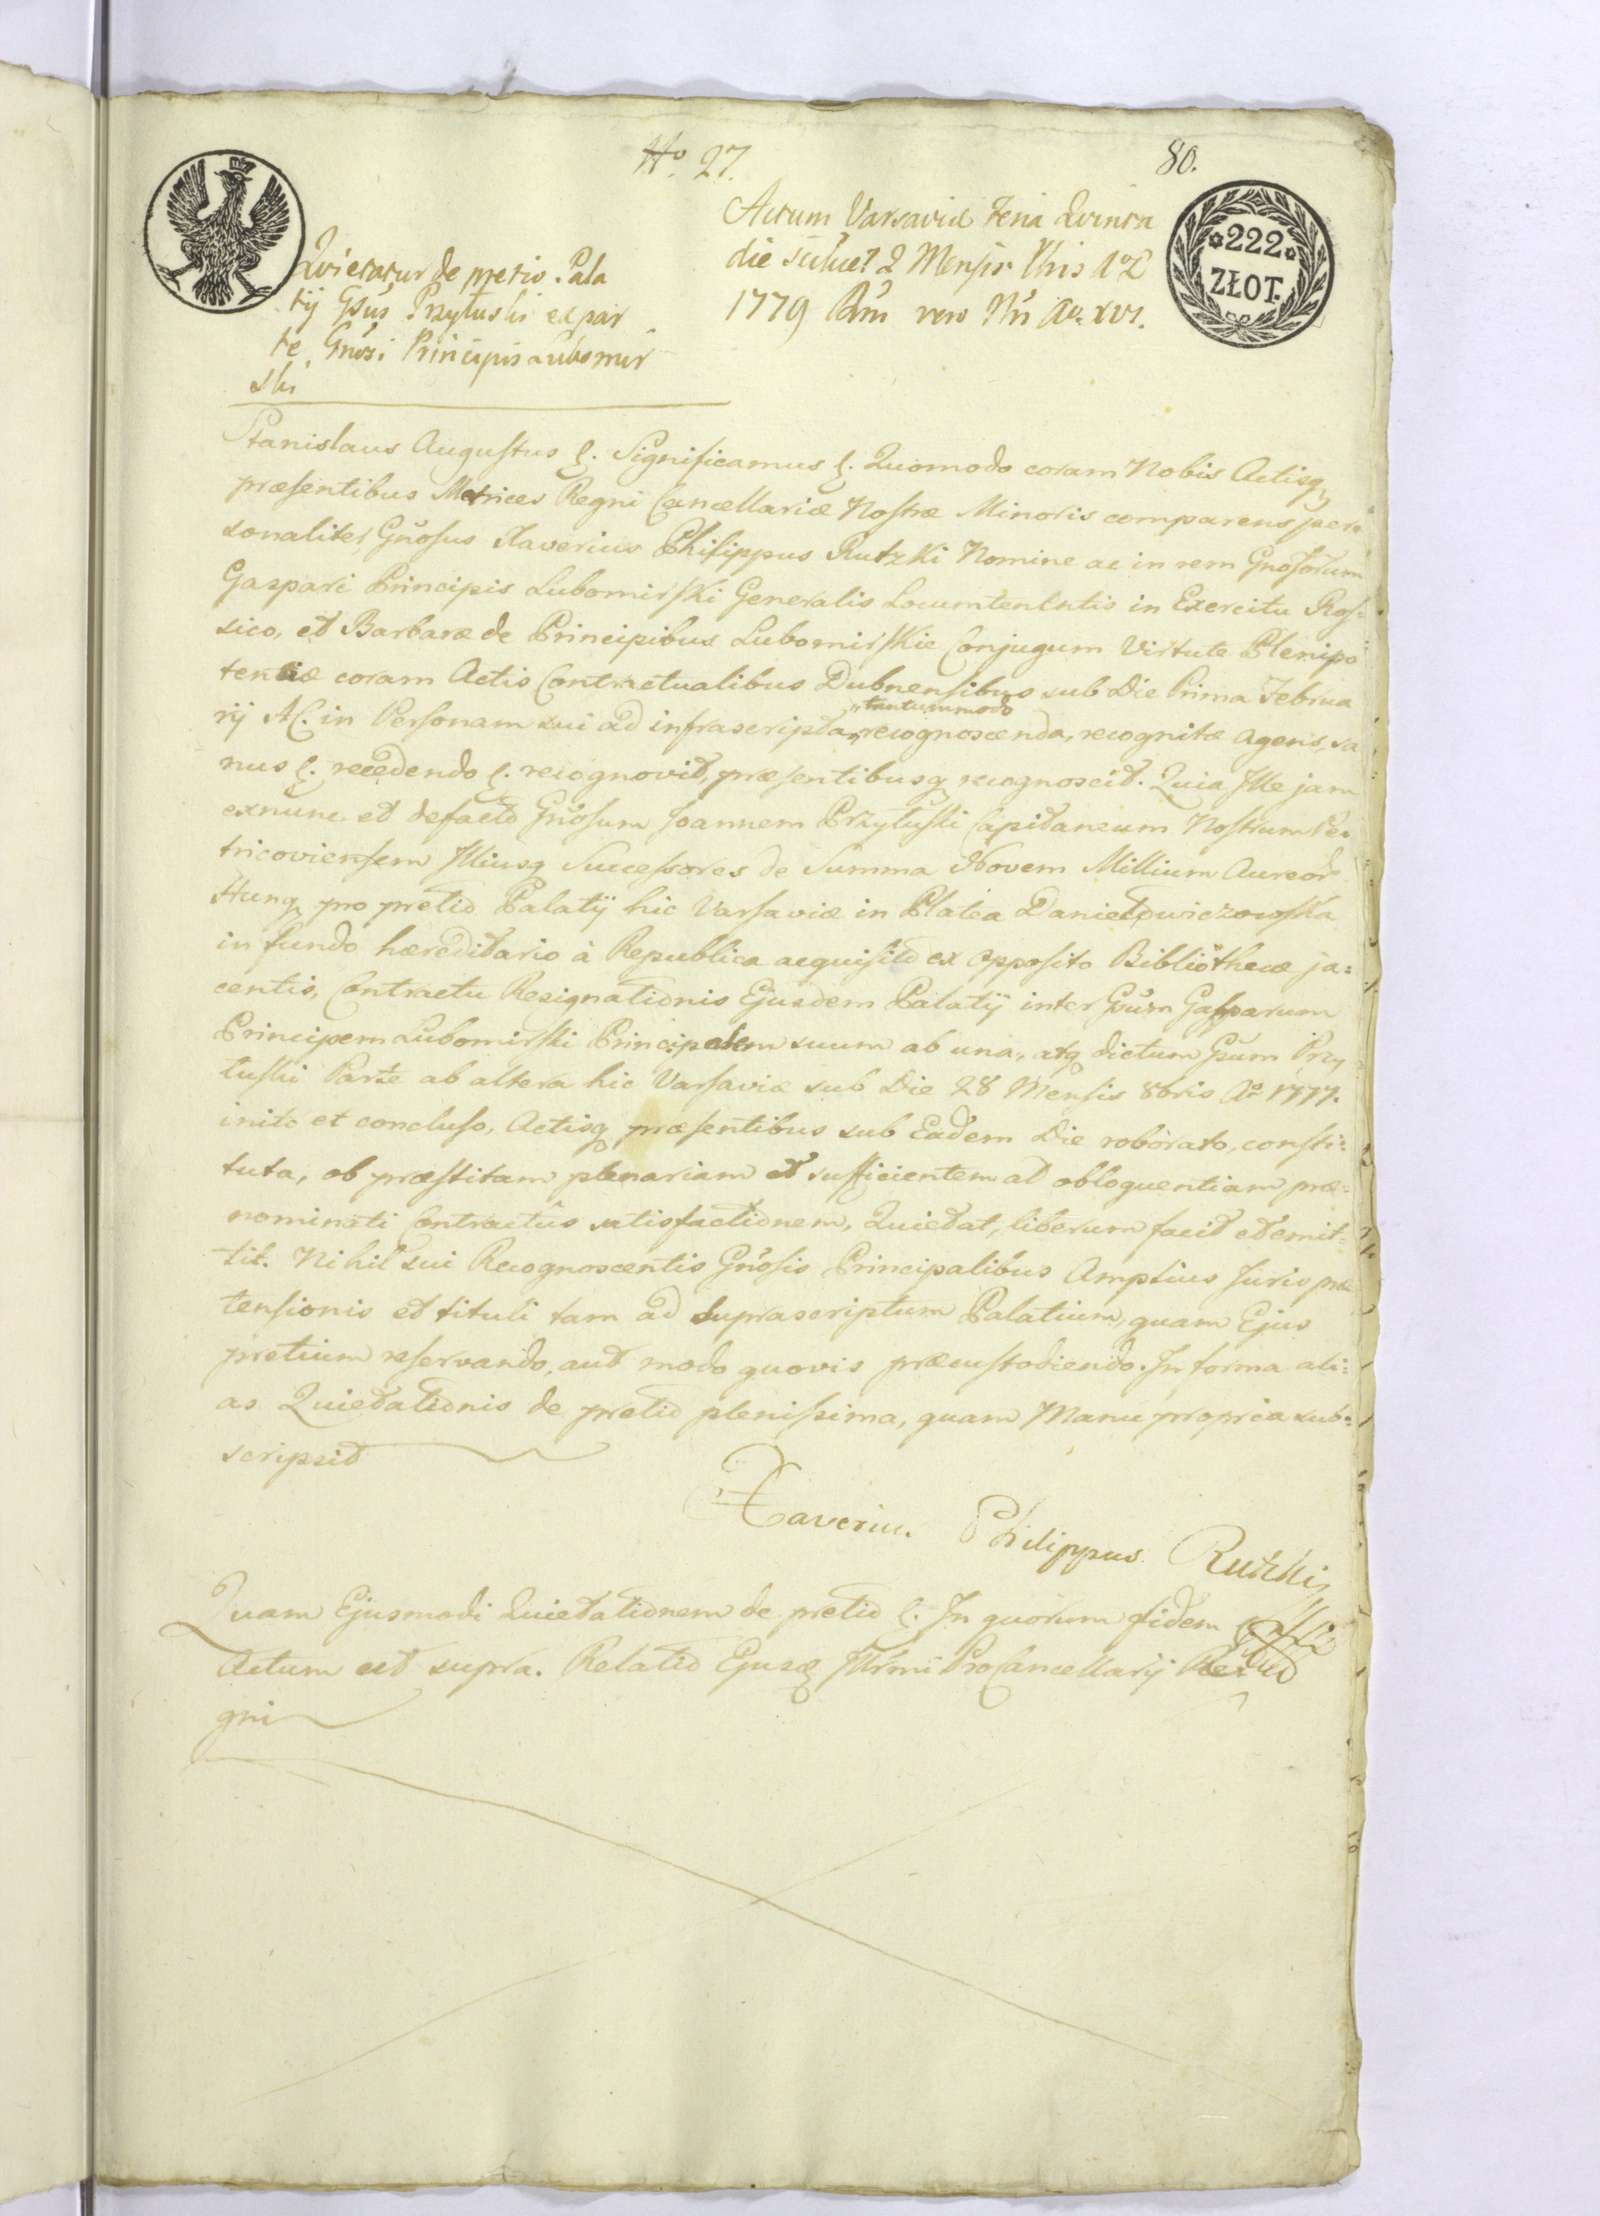 No. 27.
80.
222
ZŁOT.
Actum Varsaviæ Feria Quinta
die scilicet 2 Mensis Xbris
1779 vero XVI.
Quietatur de pretio Pala
tij Gsus Przyłuski ex par
te Gnosi Principis Lubomir
ski
Stanislaus Augustus &. Significamus &. Quomodo coram Nobis Actisq
præsentibus Metrices Regni Cancellariæ Nostræ Minoris comparens per
sonaliter Gnosus Xaverius Philippus Rutzki Nomine ac in rem Gnosorum
Gaspari Principis Lubomirski Generalis Locumtenentis in Exercitu Ros=
sico, et Barbaræ de Principibus Lubomirskie Conjugum Virtute Plenipo
tentiæ coram Actis Contractualibus Dubnensibus sub Die Prima Februa
rij AC. in Personam sui ad infrascripta tantummodo recognoscenda, recognitæ agens, sa
nus &. recedendo &. recognovit, præsentibusq recognoscit. Quia Ille jam
exnunc et defacto Gnosum Joannem Przyłuski Capitaneum Nostrum Pe
tricoviensem Illiusq Successores de Summa Novem Millium Aureor
Hung pro pretio Palatij hic Varsaviæ in Platea Danielowiczowska
in fundo hæreditario à Republica acquisito ex opposito Bibliothecæ ja=
centis, Contractu Resignationis Ejusdem Palatij inter Gsum Gasparum
Principem Lubomirski Principalem suum ab una, atq dictum Gsum Przy
łuski Parte ab altera hic Varsaviæ sub Die 28 Mensis 8bris Ao 1777.
inito et concluso, Actisq præsentibus sub Eadem Die roborato, consti=
tuta, ob præstitam plenariam et sufficientem ad obloquentiam præ=
nominati Contractûs satisfactionem, Quietat, liberum facit et emit=
tit. Nihil sui Recognoscentis Gnosis Principalibus Amplius Juris præ
tensionis et tituli tam ad suprascriptum Palatium, quam Ejus
pretium reservando, aut modo quovis præcustodiendo. In forma ali=
as Quietationis de pretio plenissima, quam Manu propria sub=
scripsit
Xaverius Philippus Rutzki
Quam Ejusmodi Quietationem de pretio &. In quorum fidem
Actum ut supra. Relatio Ejusq Illrmi ProCancellarij Re
gni